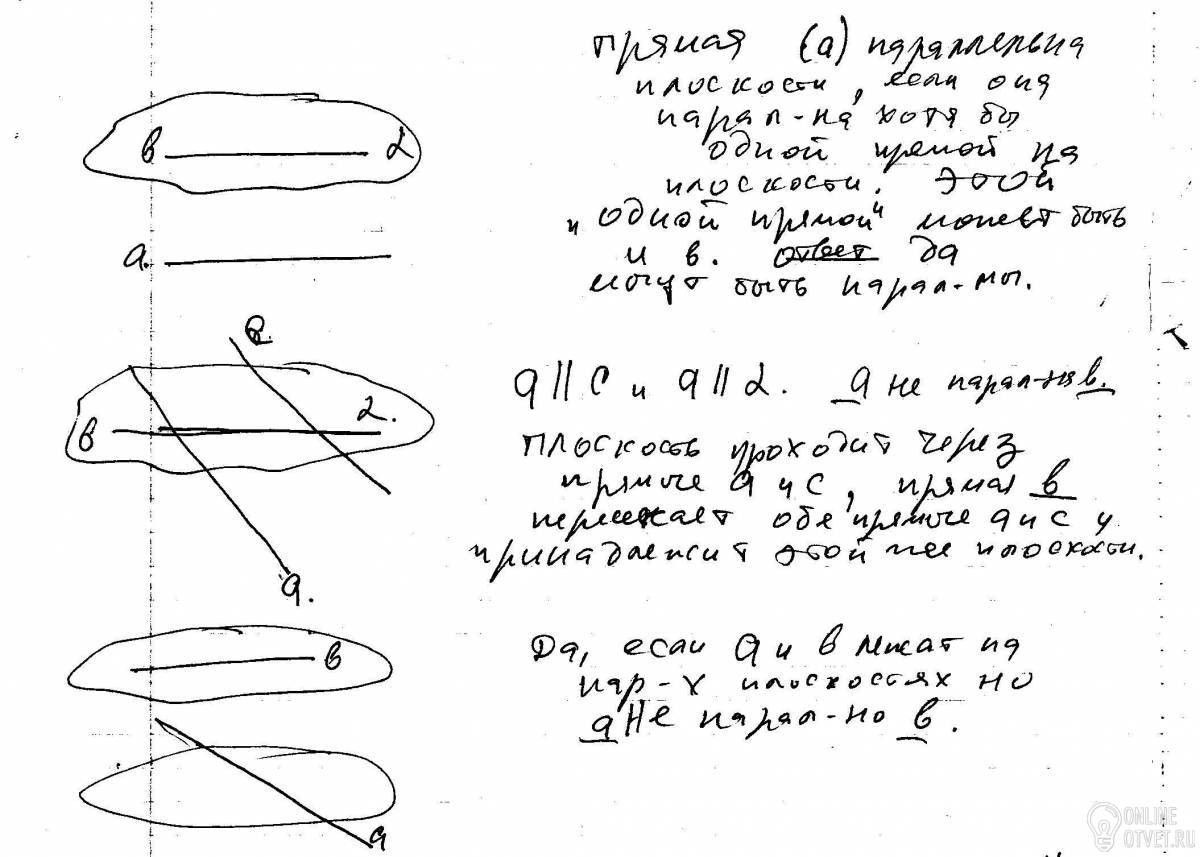 прямая (а) параллельна
плоскости, если она
парал-на хотя бы
одной прямой на
плоскости. этой
"одной прямой" может быть
и в. ответ да
могут быть парал-мы.
в α
а.
а || с и а || α. а не парал-на в.
α.
в
плоскость проходит через
прямые а и с, прямая в
пересекает обе прямые а и с и
принадлежит этой же плоскости.
а.
Да, если а и в лежат на
пар-х плоскостях но
а не парал-но в.
в
а
ONLINE
OTVET.RU